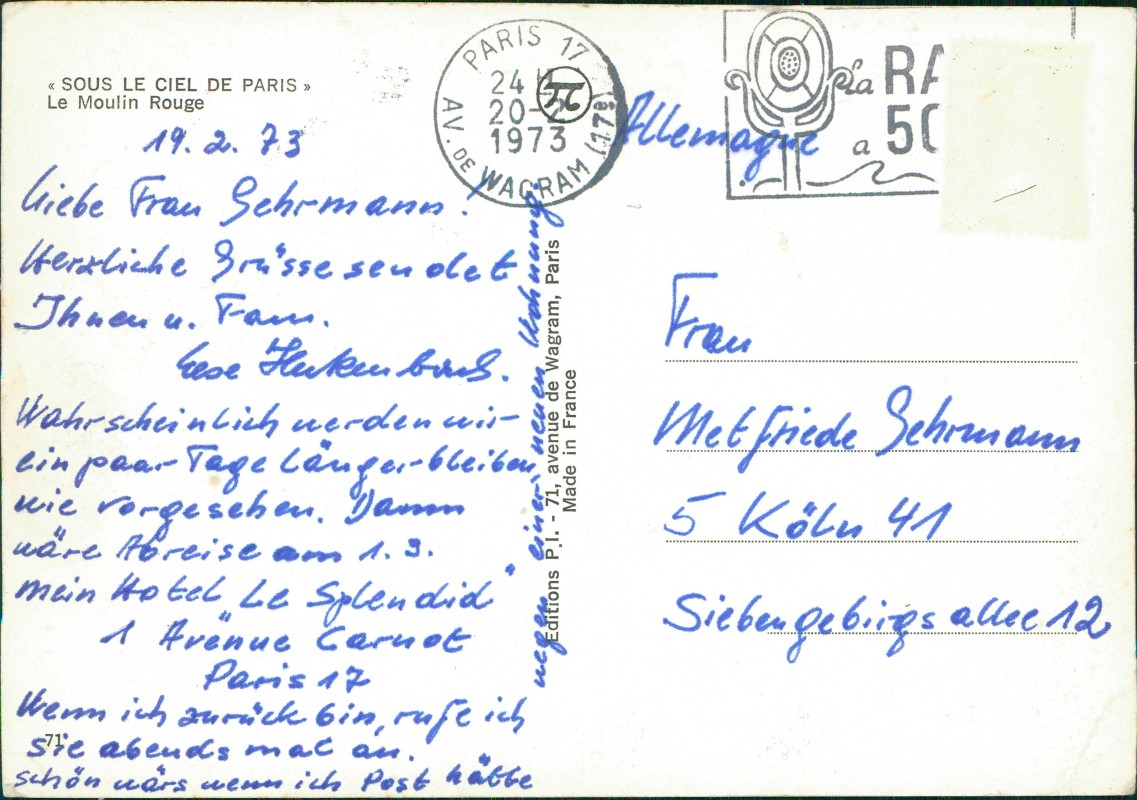 « SOUS LE CIEL DE PARIS »
Le Moulin Rouge
19.2.73
Liebe Frau Gehrmann!
Herzliche Grüsse sendet
Ihnen u. Fam.
Wahrscheinlich werden wir
ein paar Tage länger bleiben
wie vorgesehen. Dann
wäre Abreise am 1.3.
mein Hotel "Le Splendid"
1 Avenue Carnot
Paris 17
Wenn ich zurück bin, rufe ich
Sie abends mal an.
schön wärs wenn ich Post hätte
wegen einer neuen Wohnung
71
Editions P.I. - 71, avenue de Wagram, Paris
Made in France
PARIS 17
24 H
20-2
1973
AV. DE WAGRAM (17e)
La RA
a 50
Allemagne
Frau
Metfriede Gehrmann
5 Köln 41
Siebengebirgsallee 12